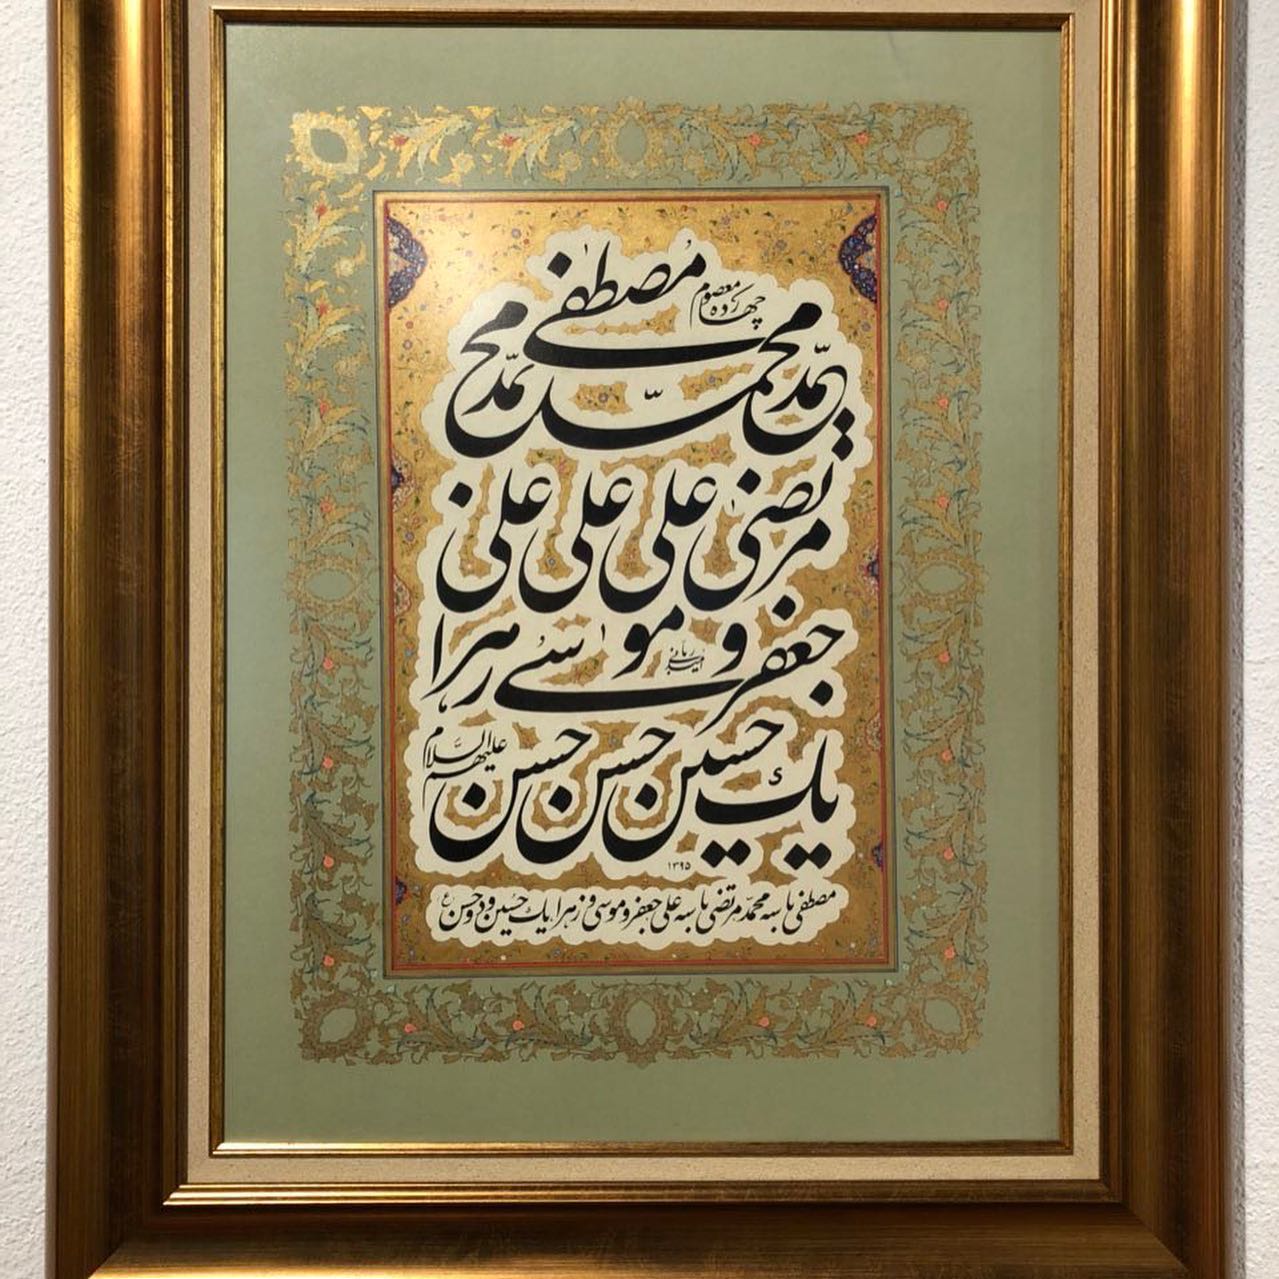 چهارده معصوم
مصطفی
محمد محمد محمد
مرتضی علی علی علی
جعفر و موسی زهرا
یک حسین حسن حسن علیهم السلام
۱۳۹۵
مصطفی با سه محمد مرتضی با سه علی جعفر و موسی و زهرا یک حسین و دو حسن ع